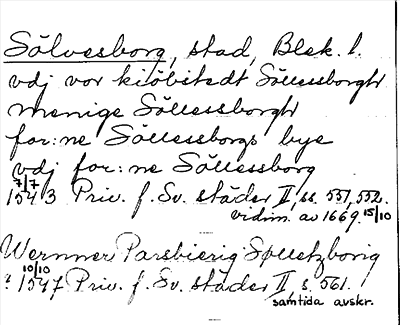 Sölvesborg, stad, Blek. l.
vdj vor kiöbstedt Söllessborgh
menige Söllessborgh
for:ne Söllessborgs bye
vdj for:ne Söllessborg
7/7
1543 Priv. f. Sv. städer II, ss. 551, 552.
vidim. av 1669 15/10
Wernner Parsbierig Sylletzborig
10/10
1547 Priv. f. Sv. städer II, s. 561.
samtida avskr.